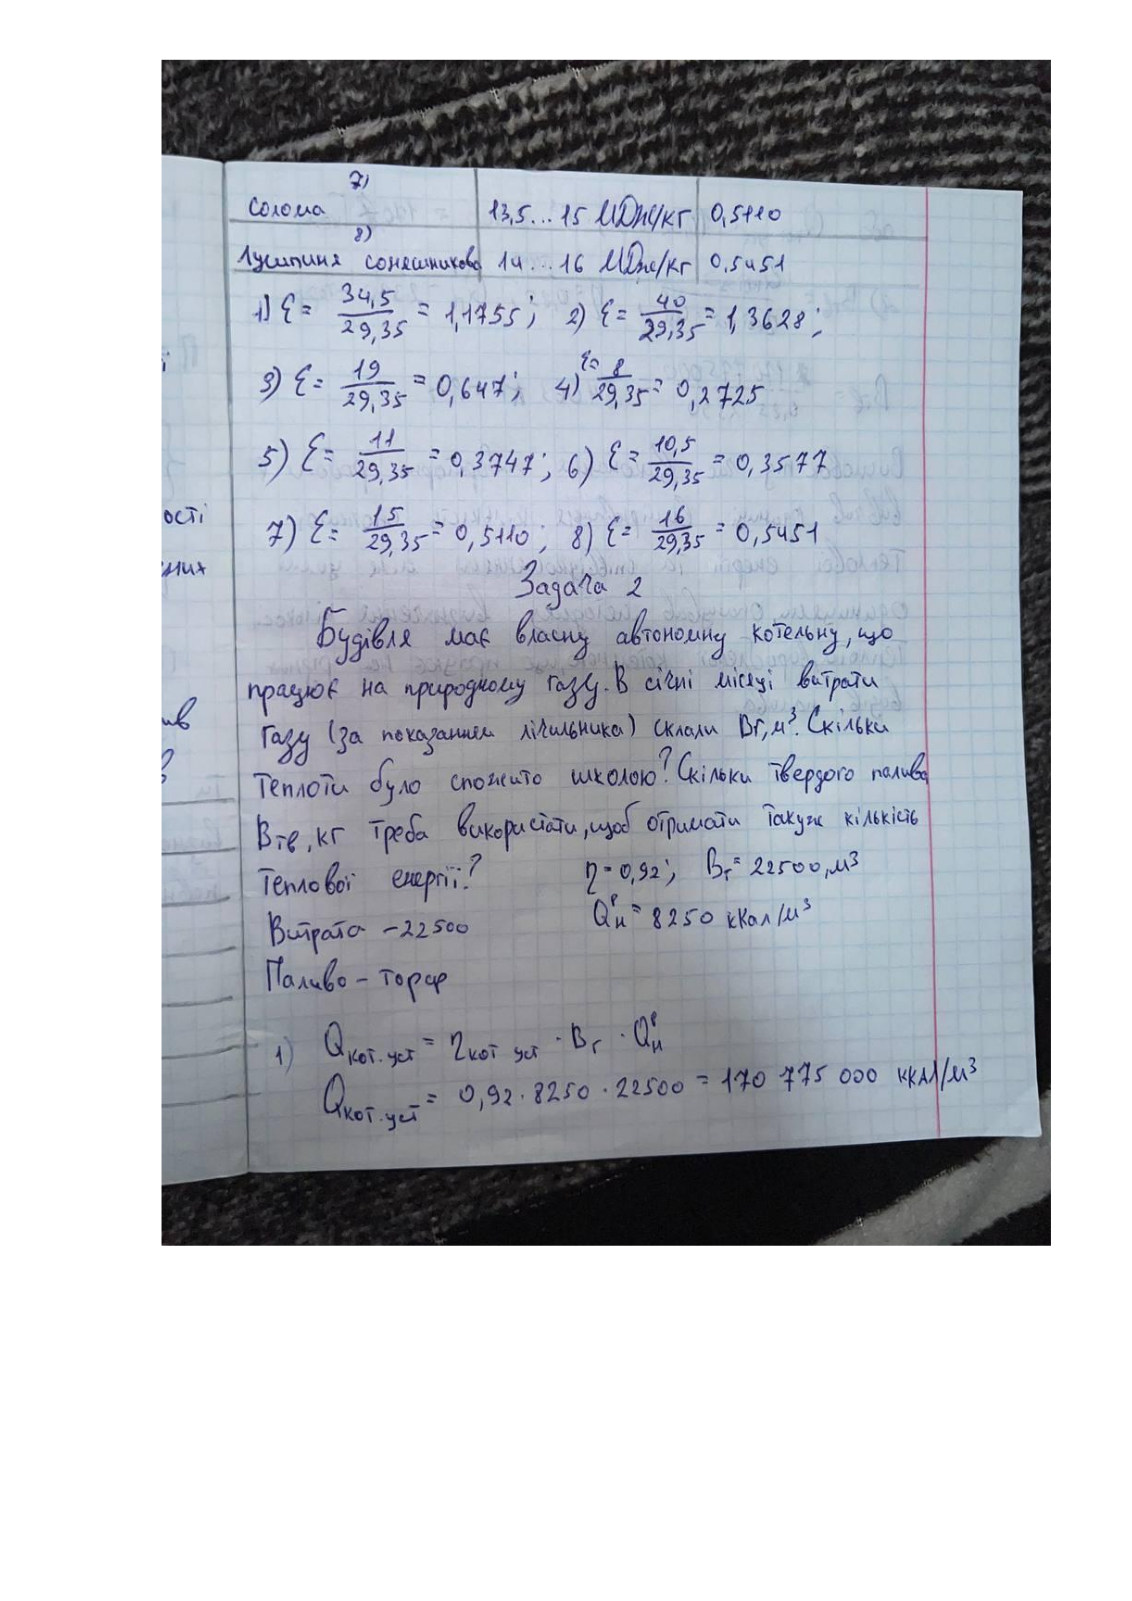 7)
Солома 13,5...15 МДж/кг 0,5110
8)
Лушпиння соняшникове 14...16 МДж/кг 0,5451
1) ℰ = 34,5/29,35 = 1,1755; 2) ℰ = 40/29,35 = 1,3628;
3) ℰ = 19/29,35 = 0,647; 4) ℰ = 8/29,35 = 0,2725
5) ℰ = 11/29,35 = 0,3747; 6) ℰ = 10,5/29,35 = 0,3577
7) ℰ = 15/29,35 = 0,5110; 8) ℰ = 16/29,35 = 0,5451
ості
них
Задача 2
Будівля має власну автономну котельну, що
працює на природному газу. В січні місяці витрати
ив
газу (за показанням лічильника) склали Вг, м³. Скільки
теплоти було спожито школою? Скільки твердого палива
Втв, кг треба використати, щоб отримати таку ж кількість
теплової енергії? η = 0,92; Вг = 22500, м³
Витрата – 22500 Qнᵖ = 8250 кКал/м³
Паливо – торф
1) Qкот.уст = ηкот уст · Вг · Qнᵖ
Qкот.уст = 0,92 · 8250 · 22500 = 170 775 000 ккал/м³